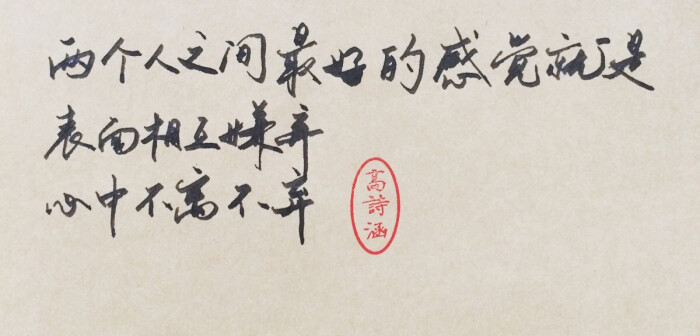 两个人之间最好的感觉就是
表面相互嫌弃
心中不离不弃
高詩涵